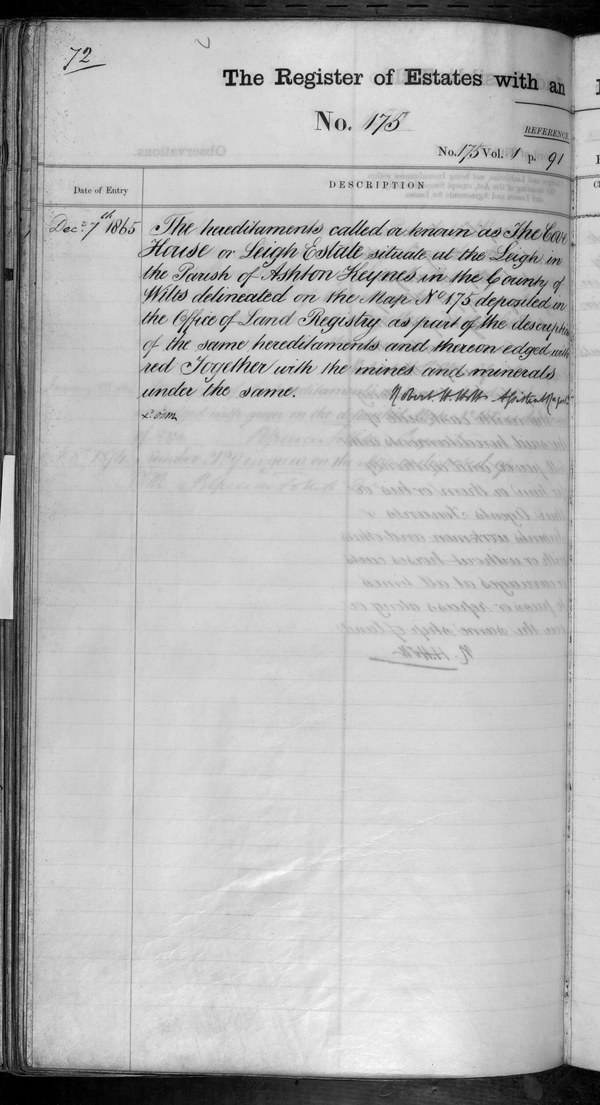 72
The Register of Estates with an
No. 175
REFERENCE
No. 175 Vol. 1 p. 91
Date of Entry
DESCRIPTION
Decr 7th 1865
The hereditaments called or known as The Cove
House or Leigh Estate situate at the Leigh in
the Parish of Ashton Keynes in the County of
Wilts delineated on the Map No 175 deposited in
the Office of Land Registry as part of the description
of the same hereditaments and thereon edged with
red Together with the mines and minerals
under the same.
Robert H. Holt Assistant